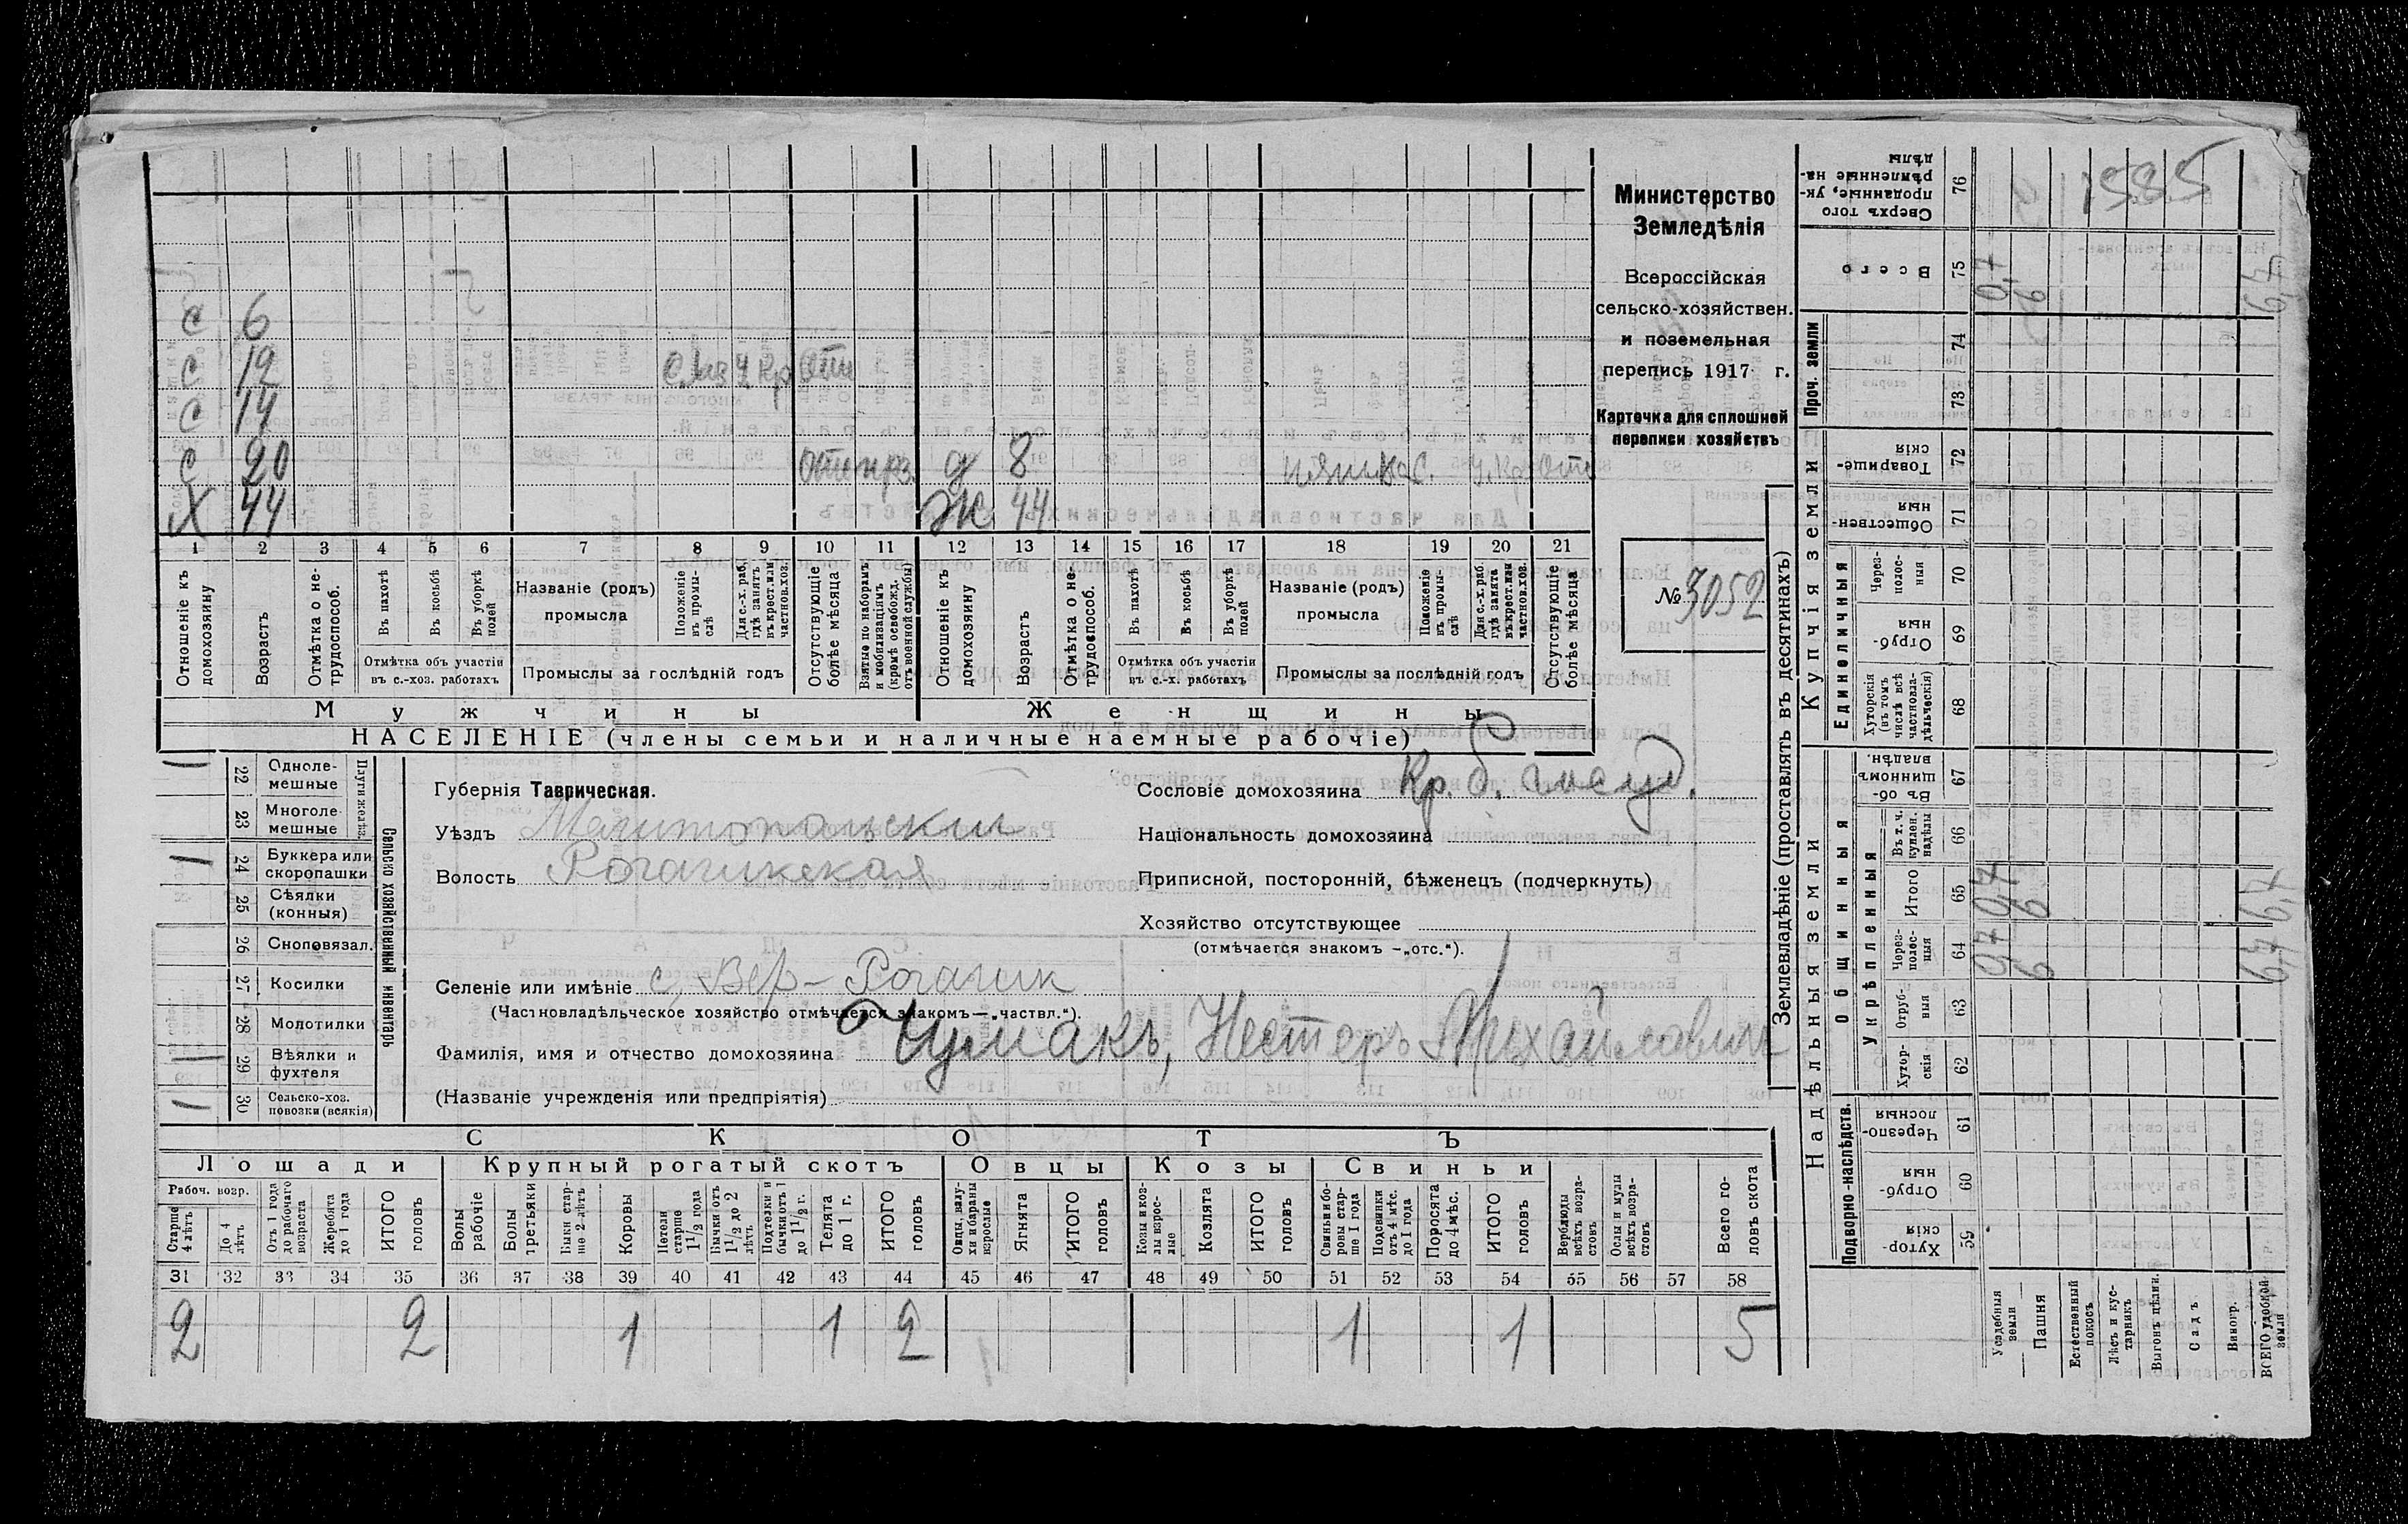 Министерство
Земледѣлія
Всероссійская
сельско-хозяйствен.
и поземельная
перепись 1917 г.
Карточка для сплошной
переписи хозяйствъ
№ 3052
с 6
с 12
с 14
с 20 д 8
Х 44 Ж 44
1 2 3 4 5 6 7 8 9 10 11 12 13 14 15 16 17 18 19 20 21
Отношеніе къ домохозяину
Возрастъ
Отмѣтка о нетрудоспособ.
Въ пахотѣ
Въ косьбѣ
Въ уборкѣ полей
Отмѣтка объ участіи въ с.-хоз. работахъ
Названіе (родъ) промысла
Положеніе въ промыслѣ
Для с.-х. раб. гдѣ занятъ въ крест. или частнов. хоз.
Промыслы за послѣдній годъ
Отсутствующіе болѣе мѣсяца
Взятые по наборамъ и мобилизаціямъ (кромѣ освобожд. отъ военной службы)
Отношеніе къ домохозяину
Возрастъ
Отмѣтка о нетрудоспособ.
Въ пахотѣ
Въ косьбѣ
Въ уборкѣ полей
Отмѣтка объ участіи въ с.-х. работахъ
Названіе (родъ) промысла
Положеніе въ промыслѣ
Для с.-х. раб. гдѣ занята въ крест. или частнов. хоз.
Промыслы за послѣдній годъ
Отсутствующіе болѣе мѣсяца
Мужчины Женщины
НАСЕЛЕНІЕ (члены семьи и наличные наемные рабочіе)
Сельско хозяйственный инвентарь
Плуги желѣз.
1 22 Однолемешные
23 Многолемешные
1 24 Буккера или скоропашки
25 Сѣялки (конныя)
26 Сноповязал.
27 Косилки
28 Молотилки
1 29 Вѣялки и фухтеля
1 30 Сельско-хоз. повозки (всякія)
Губернія Таврическая.
Уѣздъ Мелитопольский
Волость Рогачикская
Сословіе домохозяина Кр. б. госуд.
Національность домохозяина
Приписной, посторонній, бѣженецъ (подчеркнуть)
Хозяйство отсутствующее
(отмѣчается знакомъ —„отс.“).
Селеніе или имѣніе с. Вер-Рогачик
(Частновладѣльческое хозяйство отмѣчается знакомъ—„частвл.“).
Фамилія, имя и отчество домохозяина Чумакъ, Нестеръ Михайлович
(Названіе учрежденія или предпріятія)
СКОТЪ
Лошади Крупный рогатый скотъ Овцы Козы Свиньи
Рабоч. возр.
Старше 4 лѣтъ
До 4 лѣтъ
Отъ 1 года до рабочаго возраста
Жеребята до 1 года
ИТОГО головъ
Волы рабочіе
Волы третьяки
Быки старше 2 лѣтъ
Коровы
Нетели старше 1 1/2 года
Бычки отъ 1 1/2 до 2 лѣтъ
Подтелки и бычки отъ 1 до 1 1/2 г.
Телята до 1 г.
ИТОГО головъ
Овцы, валухи и бараны взрослые
Ягнята
ИТОГО головъ
Козы и козлы взрослые
Козлята
ИТОГО головъ
Свиньи и боровы старше 1 года
Подсвинки отъ 4 мѣс. до 1 года
Поросята до 4 мѣс.
ИТОГО головъ
Верблюды всѣхъ возрастовъ
Ослы и мулы всѣхъ возрастовъ
Всего головъ скота
31 32 33 34 35 36 37 38 39 40 41 42 43 44 45 46 47 48 49 50 51 52 53 54 55 56 57 58
2 2 1 1 2 1 1 5
Землевладѣніе (проставлять въ десятинахъ)
Надѣльныя земли
Купчія земли
Проч. земли
Подворно-наслѣдств.
Общинныя
Укрѣпленныя
Единоличныя
Сверхъ того проданные, укрѣпленные надѣлы 76
Всего 75
74
73
Товарищескія 72
Общественныя 71
Черезполосныя 70
Отрубныя 69
Хуторскія (въ томъ числѣ всѣ частновладѣльческія) 68
Въ общинномъ владѣн. 67
Въ т. ч. куплен. надѣлы 66
Итого 65
Черезполосныя 64
Отрубныя 63
Хуторскія 62
Черезполосныя 61
Отрубныя 60
Хуторскія 59
1585
0,7 6 6,7
0,7 6 6,7
0,7 6 6,7
Усадебныя земли
Пашня
Естественный покосъ
Лѣсъ и кустарникъ
Выгонъ цѣлин.
Садъ
Виногр.
ВСЕГО удобной земли